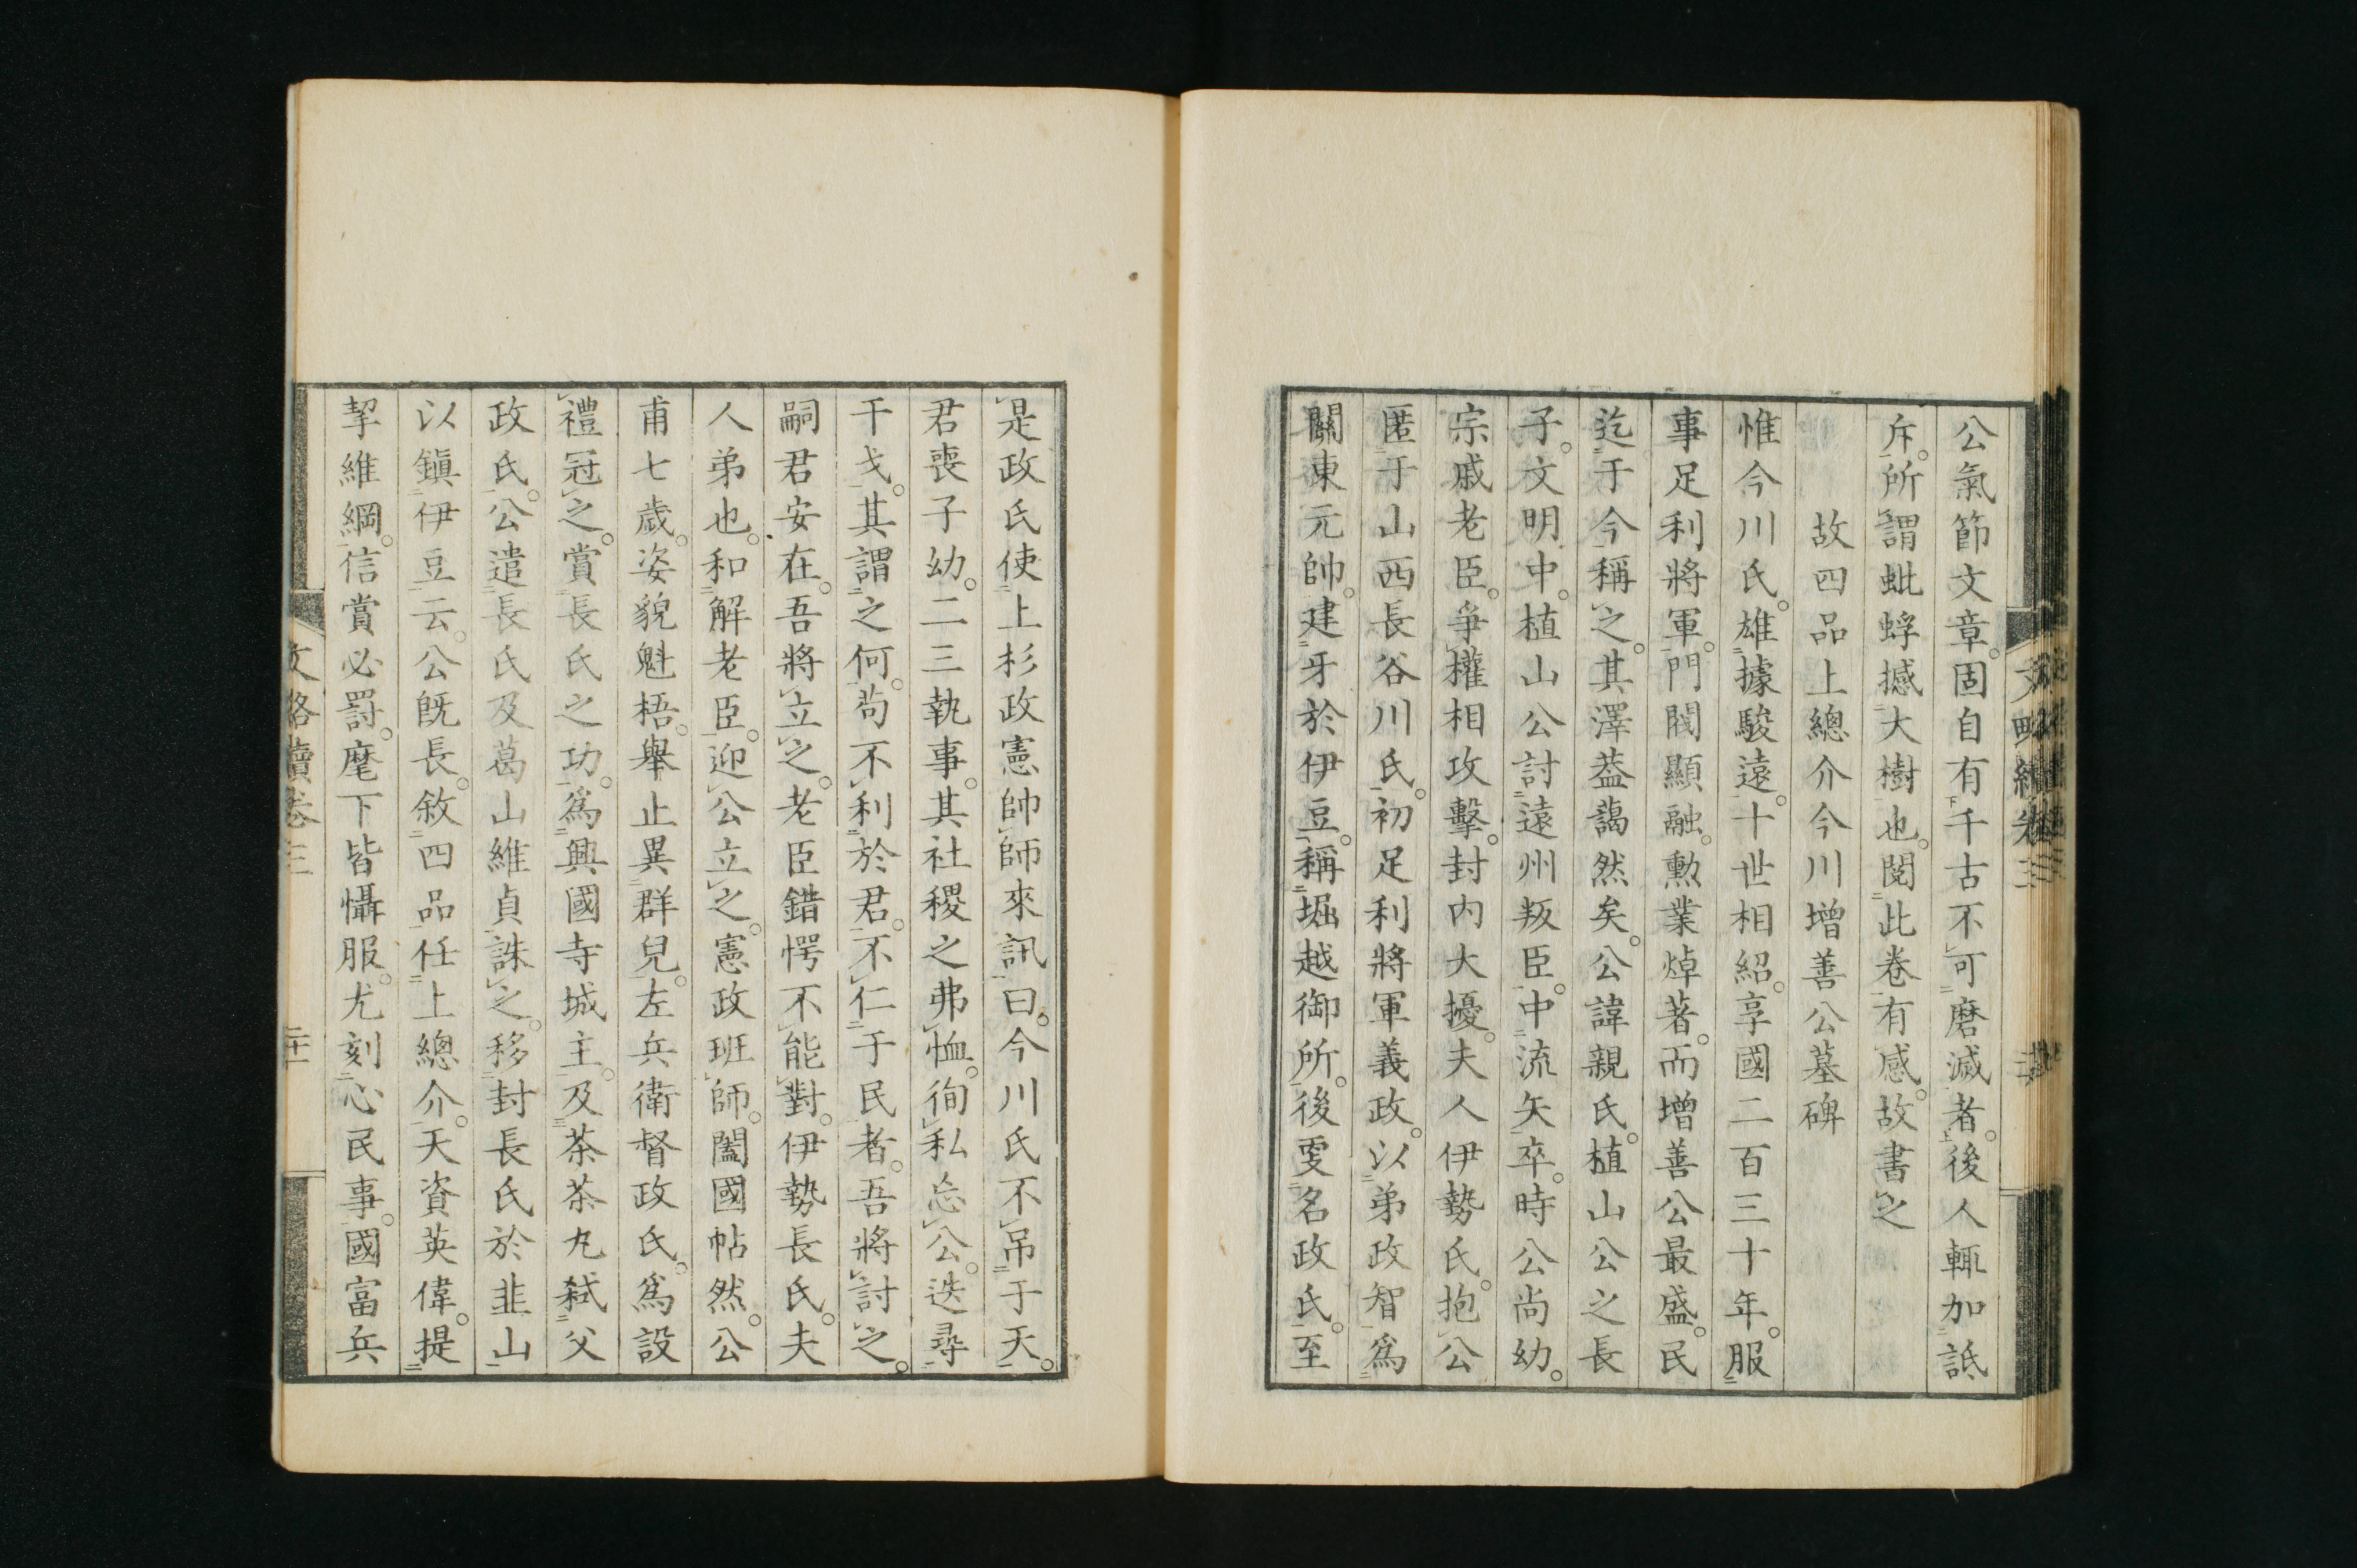 公氣節文章。固自有千古不可磨滅者。後人輒加詆
斥。所謂蚍蜉撼大樹也。閱此卷有感。故書之
故四品上總介今川增善公墓碑
惟今川氏。雄據駿遠。十世相紹。享國二百三十年。服
事足利將軍。門閥顯融。勲業焯著。而增善公最盛。民
迄于今稱之。其澤葢藹然矣。公諱親氏。植山公之長
子。文明中。植山公討遠州叛臣。中流矢卒。時公尚幼。
宗戚老臣。爭權相攻擊。封内大擾。夫人伊勢氏。抱公
匿于山西長谷川氏。初足利將軍義政。以弟政智爲
關東元帥。建牙於伊豆。稱堀越御所。後更名政氏。至
是政氏使上杉政憲帥師來訊曰。今川氏不吊于天。
君喪子幼。二三執事。其社稷之弗恤。徇私忘公。迭尋
干戈。其謂之何。苟不利於君。不仁于民者。吾將討之。
嗣君安在。吾將立之。老臣錯愕不能對。伊勢長氏。夫
人弟也。和解老臣。迎公立之。憲政班師。闔國帖然。公
甫七歲。姿貌魁梧。舉止異群兒。左兵衛督政氏。爲設
禮冠之。賞長氏之功。爲興國寺城主。及茶茶丸弑父
政氏。公遣長氏及葛山維貞誅之。移封長氏於韭山
以鎭伊豆云。公既長。敘四品任上總介。天資英偉。提
挈維綱。信賞必罰。麾下皆懾服。尤刻心民事。國富兵
文略續卷三